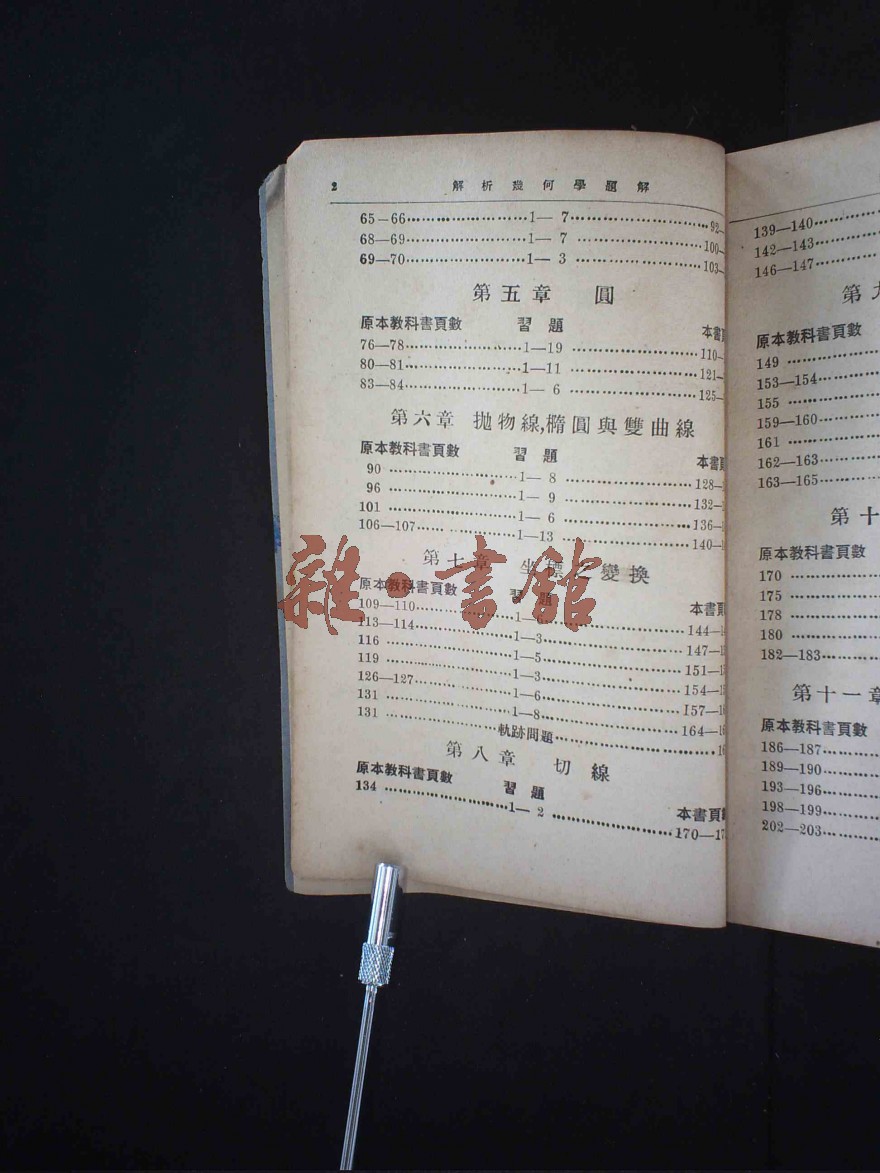 2 解析幾何學題解
65—66........................1— 7........................92—
68—69........................1— 7........................100—
69—70........................1— 3........................103—
第五章 圓
原本教科書頁數 習題 本書頁
76—78........................1—19........................110—
80—81........................1—11........................121—
83—84........................1— 6........................125—
第六章 拋物線,橢圓與雙曲線
原本教科書頁數 習題 本書頁
90........................1— 8........................128—
96........................1— 9........................132—
101........................1— 6........................136—
106—107........................1—13........................140—
第七章 坐標之變換
原本教科書頁數 習題 本書頁
109—110........................1—6........................144—
113—114........................1—3........................147—
116........................1—5........................151—
119........................1—3........................154—
126—127........................1—6........................157—
131........................1—8........................164—
131........................軌跡問題........................
第八章 切線
原本教科書頁數 習題 本書頁
134........................1— 2........................170—
雜·書館
139—140
142—143
146—147
第
原本教科書頁數
149
153—154
155
159—160
161
162—163
163—165
第十
原本教科書頁數
170
175
178
180
182—183
第十一章
原本教科書頁數
186—187
189—190
193—196
198—199
202—203